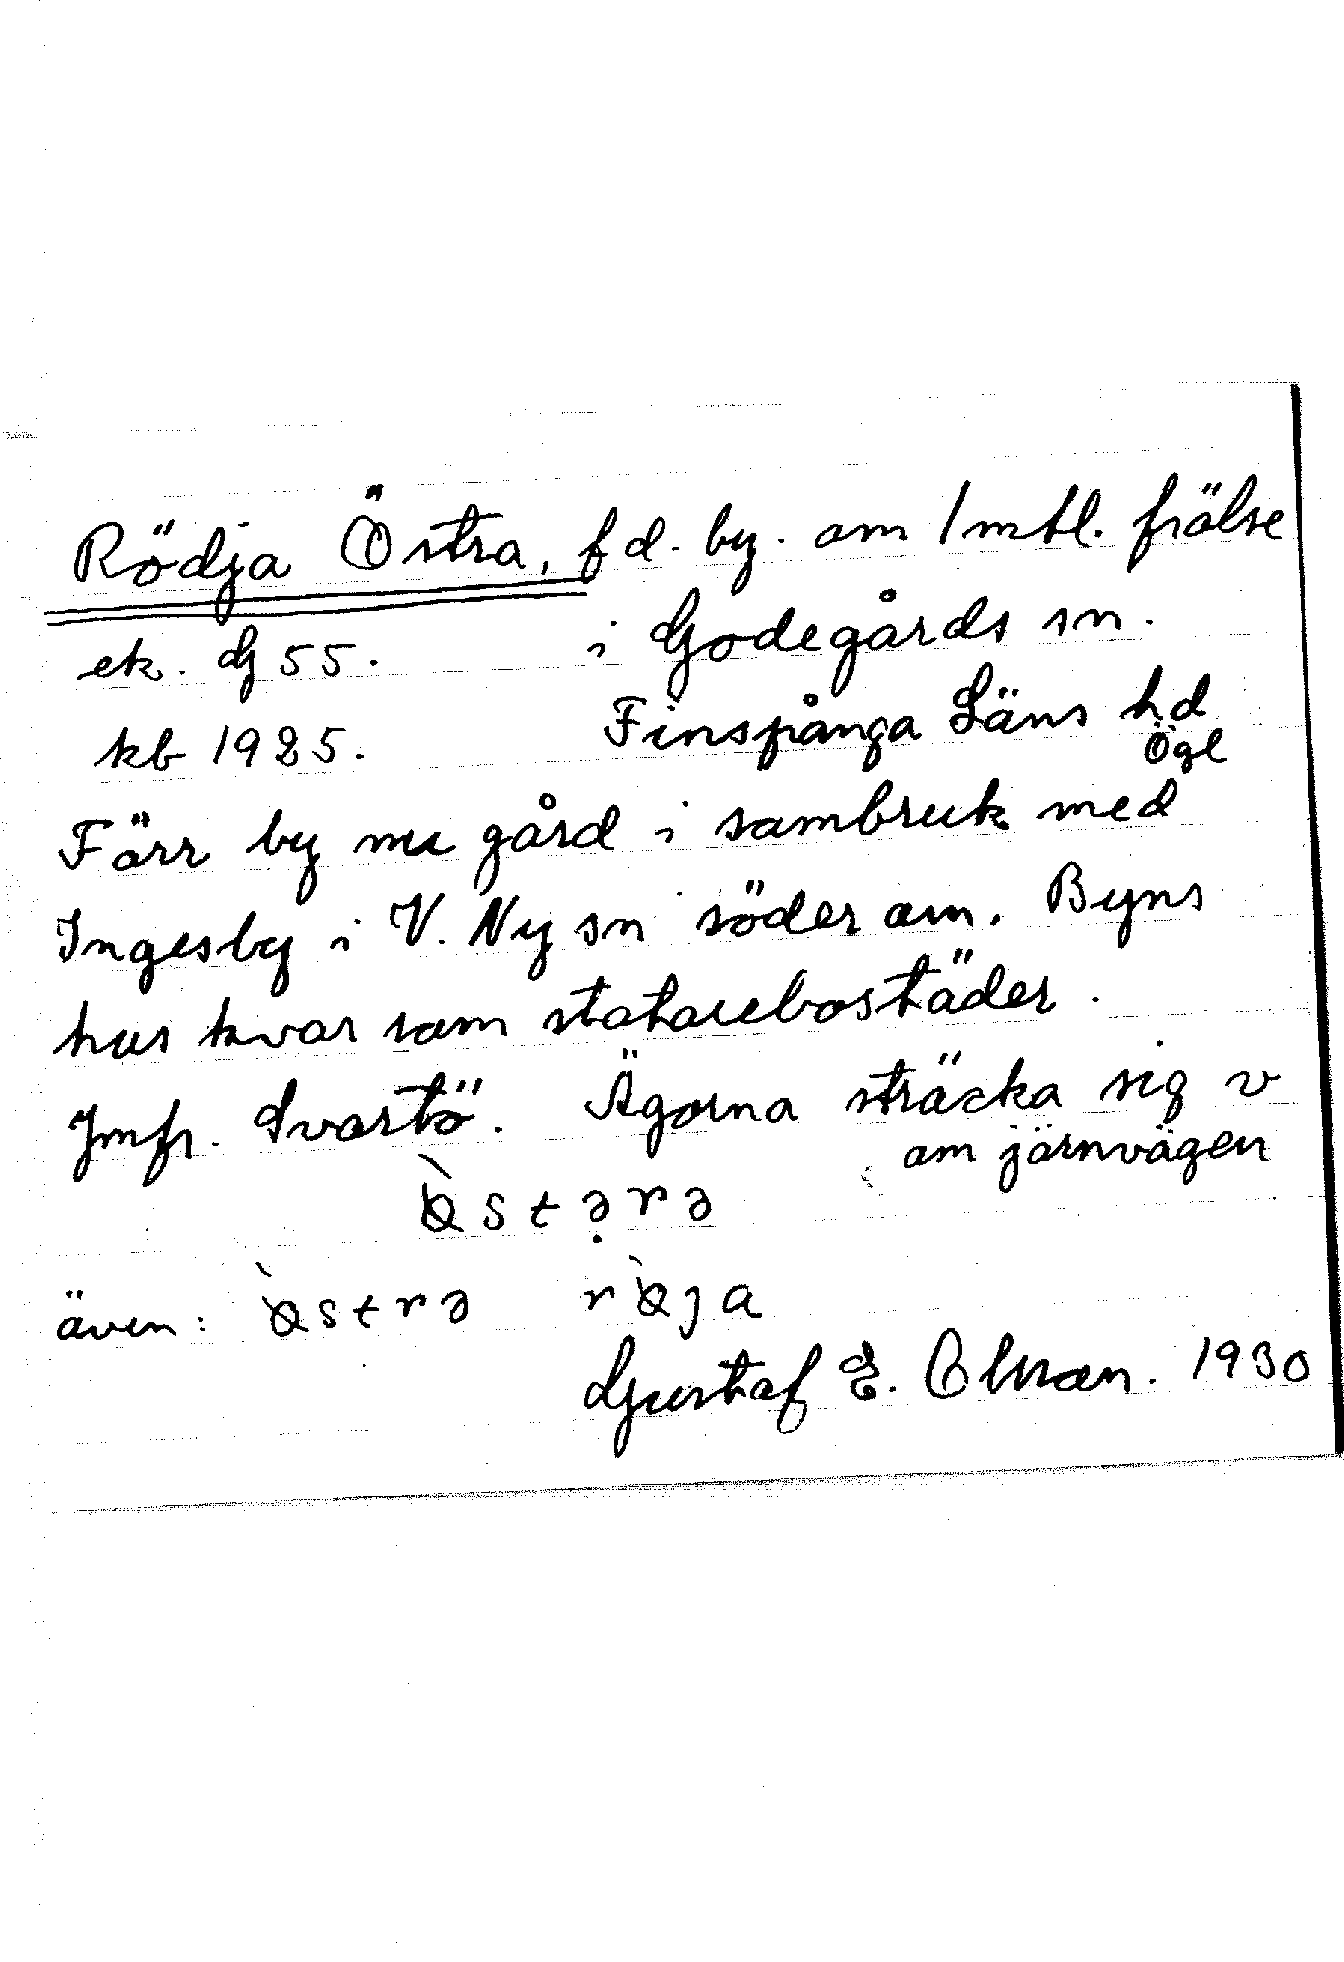 Rödja Östra, f d. by. om 1 mtl. frälse
ek. dg 55. i Godegårds sn.
kb 1925. Finspånga Läns hd
Ögl
Förr by nu gård i sambruk med
Ingesby i V. Ny sn söder om. Byns
hus kvar som statarebostäder.
Jmfr. Svartö. Ägorna sträcka sig v
om järnvägen
s t ə r ə
även: s t r ə r j a
Gustaf E. Olsson. 1930